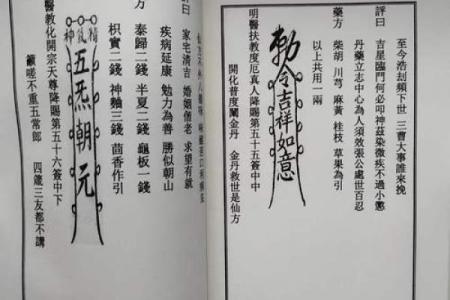 至今浩劫頻下世 三曹大事誰來挽
評曰
吉星臨門何必叩神茲染微疾不過小懲
丹藥立志中心為人須效張公處世百忍
藥方
柴胡 川芎 麻黃 桂枝 草果為引
以上共用一兩
勅令吉祥如意
明醫扶教度厄真人降賜第五十五簽中中
開化普度闡金丹 金丹救世是仙方
曰
家宅清吉 婚姻偕老 求望有就
疾病延康 勉力為善 勝似朝山
方
泰歸二錢 半夏二錢 龜板一錢
枳實二錢 神麯三錢 茴香作引
精炁神
五炁朝元
醫教化開宗天尊降賜第五十六簽中下
籲嗟不重五常郎 三友都不講